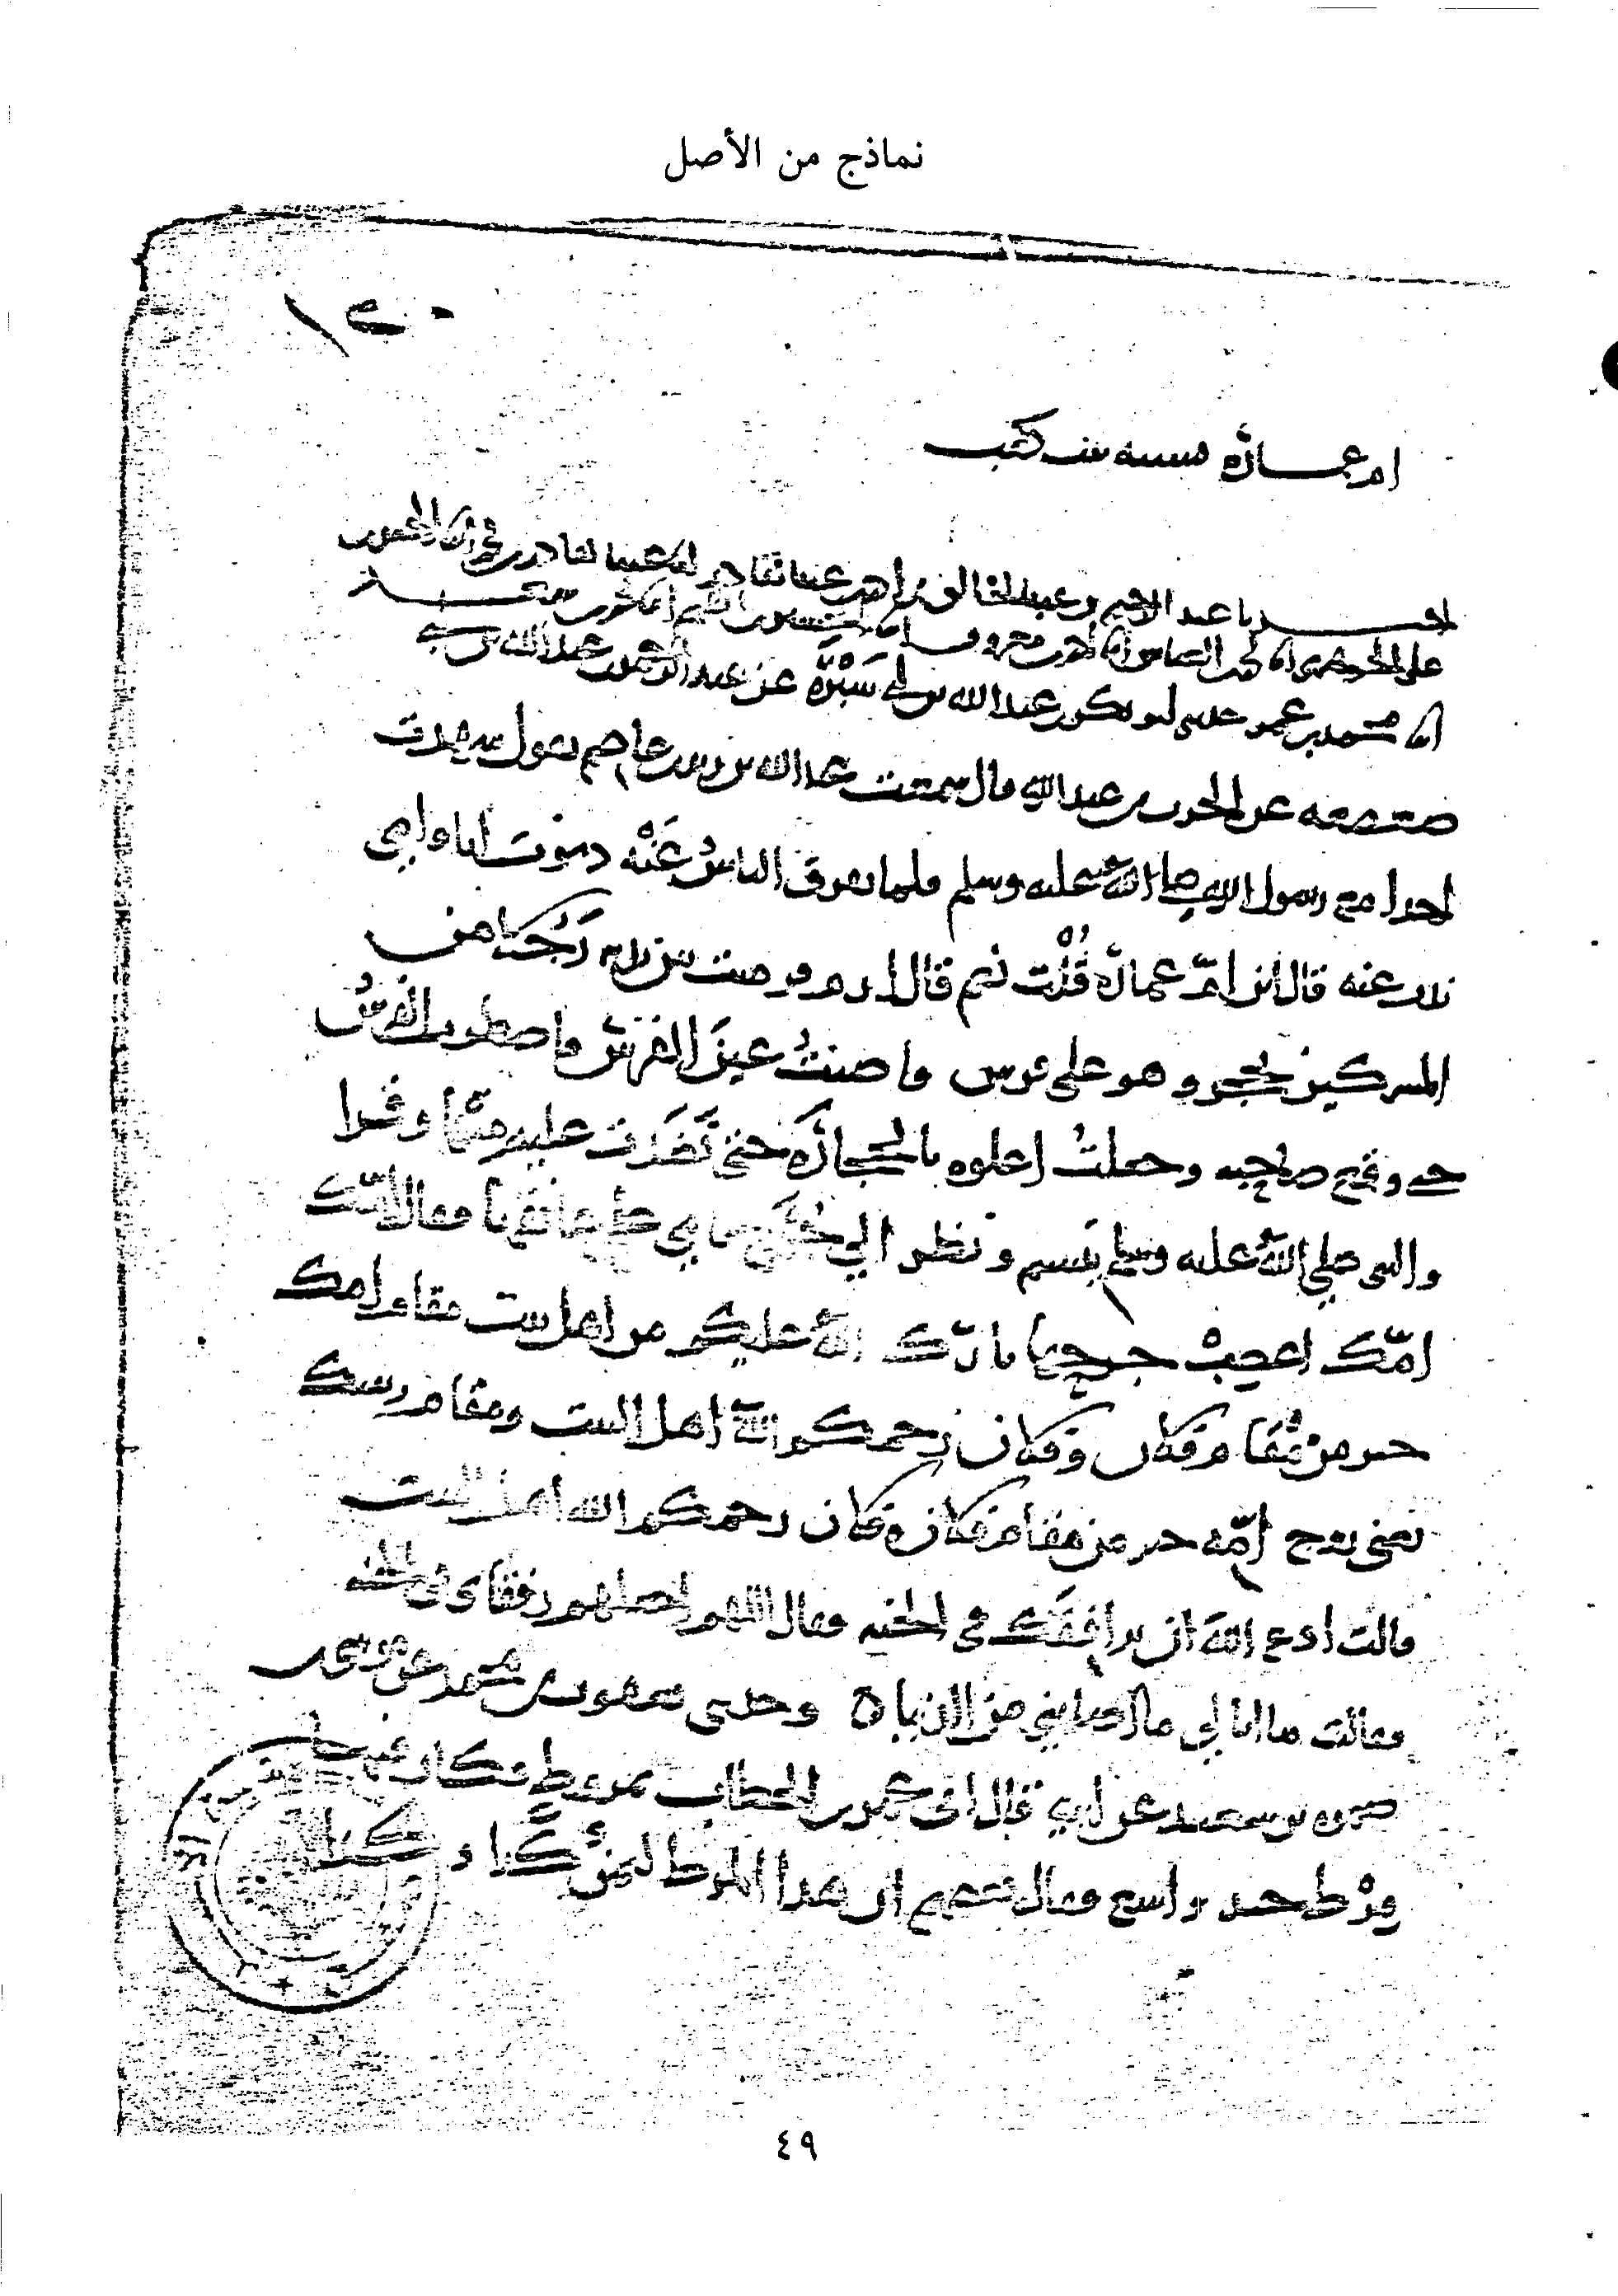 نماذج من الأصل
١٢٠
ام عمارة نسيبه بنت كعب
اخبرنا عبد الرحيم وعبد الخالق
على الجوهري انا معروف
انا محمد بن عمر حدثني ابو بكر بن عبد الله بن أبي سَبْرَة عن عبد الرحمن بن عبد الله بن أبي
صعصعه عن الحرث بن عبد الله قال سمعت عبد الله بن زيد بن عاصم يقول شهدت
احدا مع رسول الله صلى الله عليه وسلم فلما تفرق الناسُ عَنْه دنوت انا وامي
نذب عنه قال ابن امّ عمارة قُلْت نعم قال ارم فرميت بين يديه رَجُلا من
المشركين بحجر وهو على فرس فاصبتُ عينَ الفرس فاضطرب الفرسُ
حتى وقع صاحبه وجعلتُ اعلوه بالحجارة حتى نَضَدت عليه منها وقرا
والنبي صلي الله عليه وسلم يتبسم ونظر الي جُرْح بامي على عاتقها فقال امّك
امّك اعصِبْ جرحها بارك الله عليكم من اهل بيت مقام امك
خير من مُقام فلان وفلان رحمكم الله اهل البيت ومقام ربيبك
يعني زوج امّه خير من مقام فلان وفلان رحمكم الله اهل البيت
قالت ادع الله ان نرافقك في الجنه فقال اللهم اجعلهم رفقاي في الجنه
فقالت ما ابالي ما اصابني من الدنيا ٥ وحدثني يعقوب بن محمد عن موسى بن
ضمرة بن سعيد عن ابيه قال اتى عمر بن الخطاب بمروط فكان فيها
مِرْط جيد واسع فقال بعضهم ان هذا المرط لثمن كَذا وكذا
٤٩